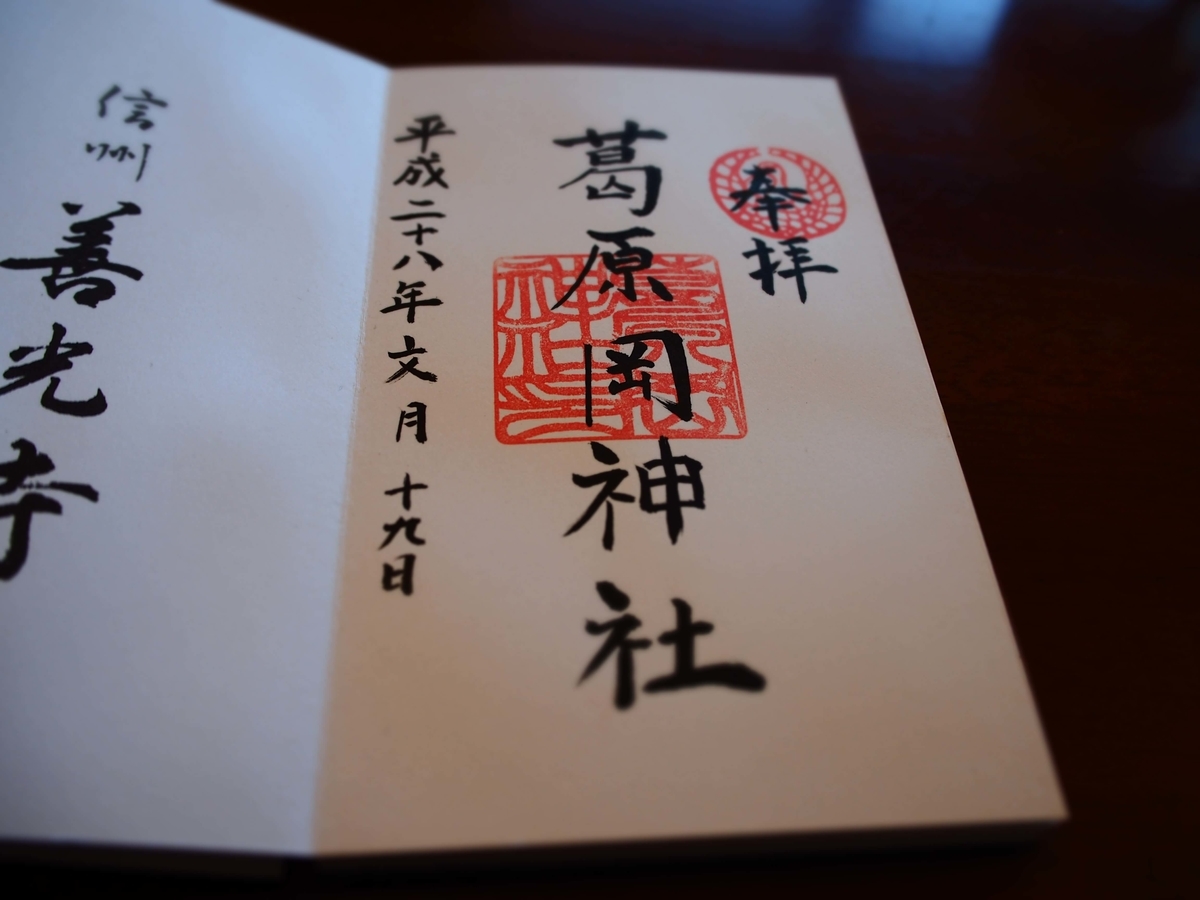 奉拝
葛原岡神社
平成二十八年文月十九日
信州
善光寺